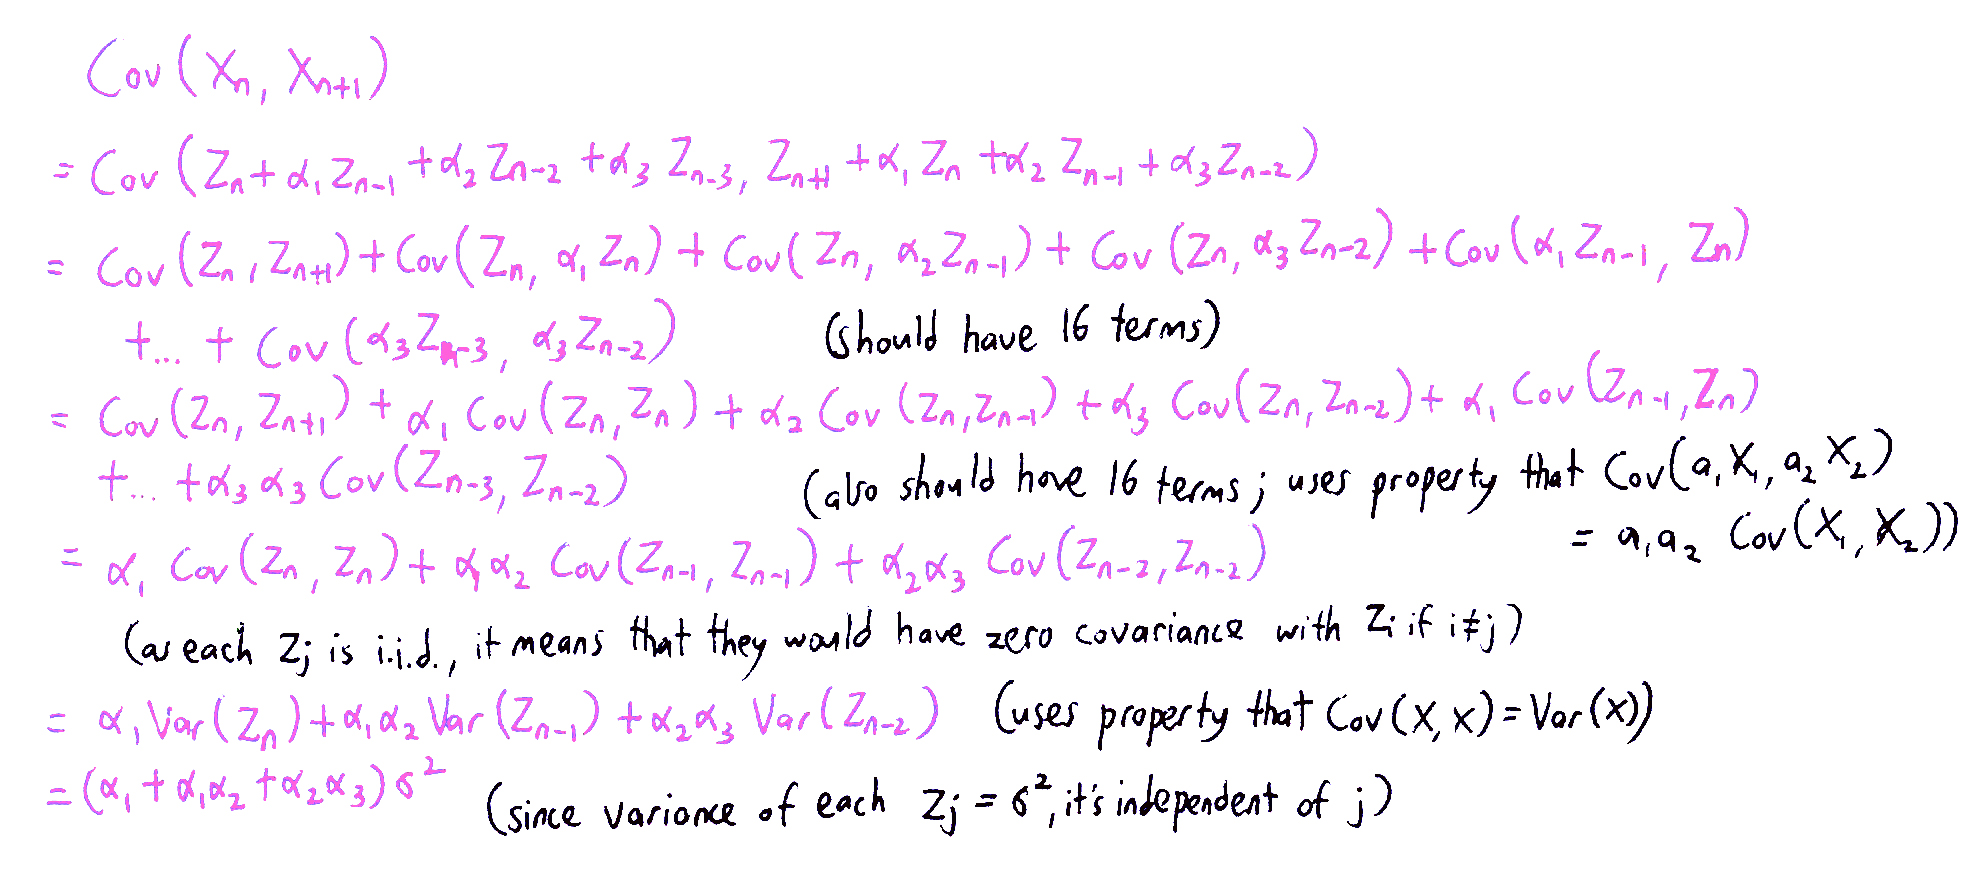 Cov(Xₙ, Xₙ₊₁)
= Cov(Zₙ + α₁Zₙ₋₁ + α₂Zₙ₋₂ + α₃Zₙ₋₃, Zₙ₊₁ + α₁Zₙ + α₂Zₙ₋₁ + α₃Zₙ₋₂)
= Cov(Zₙ, Zₙ₊₁) + Cov(Zₙ, α₁Zₙ) + Cov(Zₙ, α₂Zₙ₋₁) + Cov(Zₙ, α₃Zₙ₋₂) + Cov(α₁Zₙ₋₁, Zₙ)
+... + Cov(α₃Zₙ₋₃, α₃Zₙ₋₂) (should have 16 terms)
= Cov(Zₙ, Zₙ₊₁) + α₁ Cov(Zₙ, Zₙ) + α₂ Cov(Zₙ, Zₙ₋₁) + α₃ Cov(Zₙ, Zₙ₋₂) + α₁ Cov(Zₙ₋₁, Zₙ)
+... + α₃α₃ Cov(Zₙ₋₃, Zₙ₋₂) (also should have 16 terms; uses property that Cov(a₁X₁, a₂X₂)
= a₁a₂ Cov(X₁, X₂))
= α₁ Cov(Zₙ, Zₙ) + α₁α₂ Cov(Zₙ₋₁, Zₙ₋₁) + α₂α₃ Cov(Zₙ₋₂, Zₙ₋₂)
(as each Zⱼ is i.i.d., it means that they would have zero covariance with Zᵢ if i≠j)
= α₁Var(Zₙ) + α₁α₂ Var(Zₙ₋₁) + α₂α₃ Var(Zₙ₋₂) (uses property that Cov(X, X) = Var(X))
= (α₁ + α₁α₂ + α₂α₃)σ² (since variance of each Zⱼ = σ², it's independent of j)